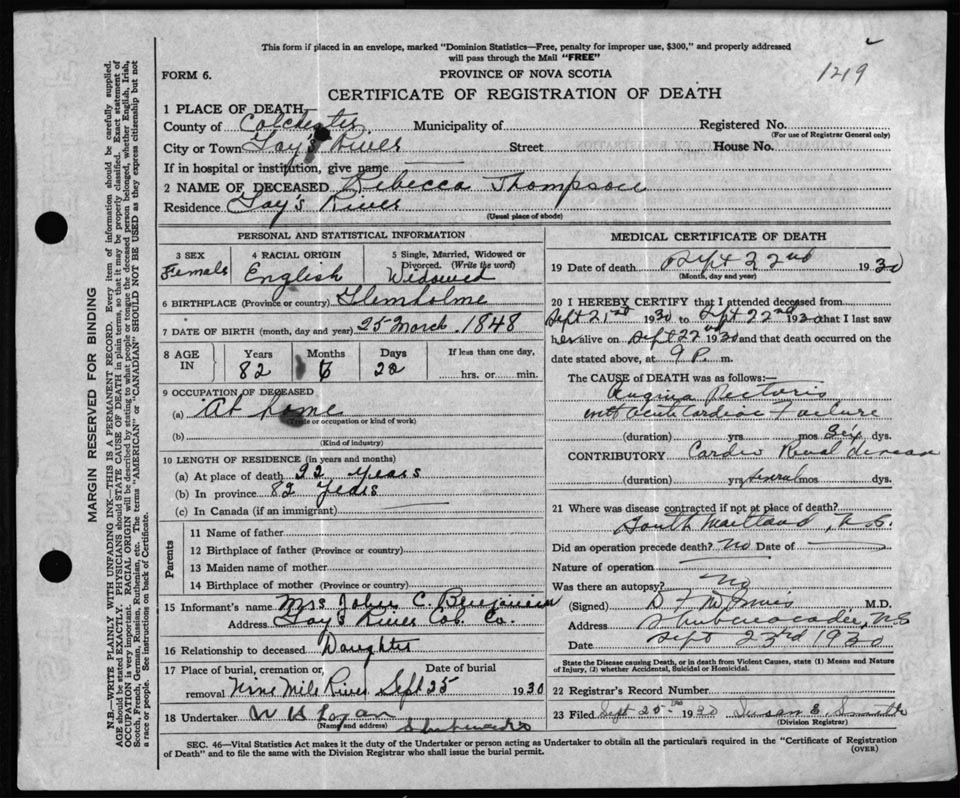 This form if placed in an envelope, marked "Dominion Statistics—Free, penalty for improper use, $300," and properly addressed
will pass through the Mail "FREE"
1219
FORM 6.
PROVINCE OF NOVA SCOTIA
CERTIFICATE OF REGISTRATION OF DEATH
1 PLACE OF DEATH
County of Colchester Municipality of Registered No.
(For use of Registrar General only)
City or Town Gay's River Street House No.
If in hospital or institution, give name
2 NAME OF DECEASED Rebecca Thompson
Residence Gay's River
(Usual place of abode)
PERSONAL AND STATISTICAL INFORMATION
3 SEX
Female
4 RACIAL ORIGIN
English
5 Single, Married, Widowed or
Divorced. (Write the word)
Widowed
6 BIRTHPLACE (Province or country) Glenholme
7 DATE OF BIRTH (month, day and year) 25 March. 1848
8 AGE IN
Years Months Days
82 6 28
If less than one day,
hrs. or min.
9 OCCUPATION OF DECEASED
(a) At home
(Trade or occupation or kind of work)
(b)
(Kind of industry)
10 LENGTH OF RESIDENCE (in years and months)
(a) At place of death 22 years
(b) In province 82 years
(c) In Canada (if an immigrant)
Parents
11 Name of father
12 Birthplace of father (Province or country)
13 Maiden name of mother
14 Birthplace of mother (Province or country)
15 Informant's name Mrs John C. Benjamin
Address Gay's River Col. Co.
16 Relationship to deceased Daughter
17 Place of burial, cremation or Date of burial
removal Nine Mile River Sept 25 1930
18 Undertaker W H Logan
(Name and address) Shubenacadie
MEDICAL CERTIFICATE OF DEATH
19 Date of death Sept 22nd 1930
(Month, day and year)
20 I HEREBY CERTIFY that I attended deceased from
Sept 21st 1930 to Sept 22nd 1930 that I last saw
her alive on Sept 22nd 1930 and that death occurred on the
date stated above, at 9 P. m.
The CAUSE of DEATH was as follows:—
Angina Pectoris
with acute Cardiac Failure
(duration) yrs mos Six dys.
CONTRIBUTORY Cardio Renal disease
(duration) yrs several mos dys.
21 Where was disease contracted if not at place of death?
South Maitland, N.S.
Did an operation precede death? No Date of
Nature of operation
Was there an autopsy? No
(Signed) M.D.
Address Shubenacadie, N.S
Date Sept 23rd 1930
State the Disease causing Death, or in death from Violent Causes, state (1) Means and Nature
of Injury, (2) whether Accidental, Suicidal or Homicidal.
22 Registrar's Record Number
23 Filed Sept 25 1930 Susan E.
(Division Registrar)
SEC. 46—Vital Statistics Act makes it the duty of the Undertaker or person acting as Undertaker to obtain all the particulars required in the "Certificate of Registration
of Death" and to file the same with the Division Registrar who shall issue the burial permit.
(OVER)
MARGIN RESERVED FOR BINDING
N.B.—WRITE PLAINLY WITH UNFADING INK—THIS IS A PERMANENT RECORD. Every item of information should be carefully supplied.
AGE should be stated EXACTLY. PHYSICIANS should STATE CAUSE OF DEATH in plain terms, so that it may be properly classified. Exact statement of
OCCUPATION is very important. RACIAL ORIGIN will be described by stating to what people or tongue the deceased person belonged, whether English, Irish,
Scotch, French, German, Russian, Ruthenian, etc. The terms "AMERICAN" or "CANADIAN" SHOULD NOT BE USED as they express citizenship but not
a race or people. See instructions on back of Certificate.